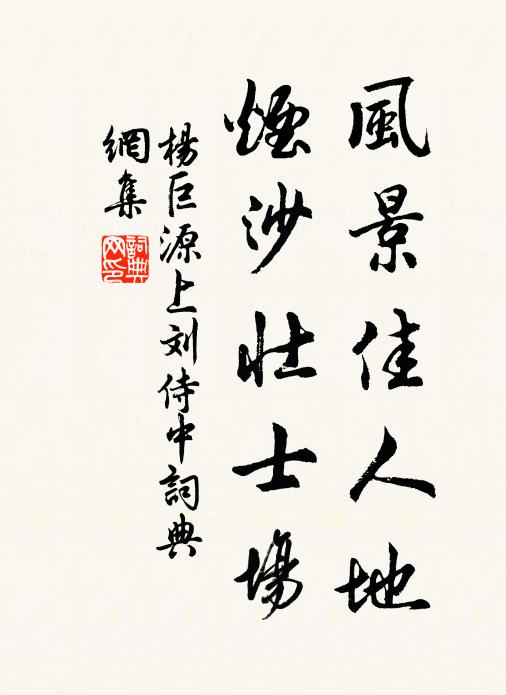 風景佳人地
煙沙壮士場
楊巨源上刘侍中詞典
網集
詞典
网印